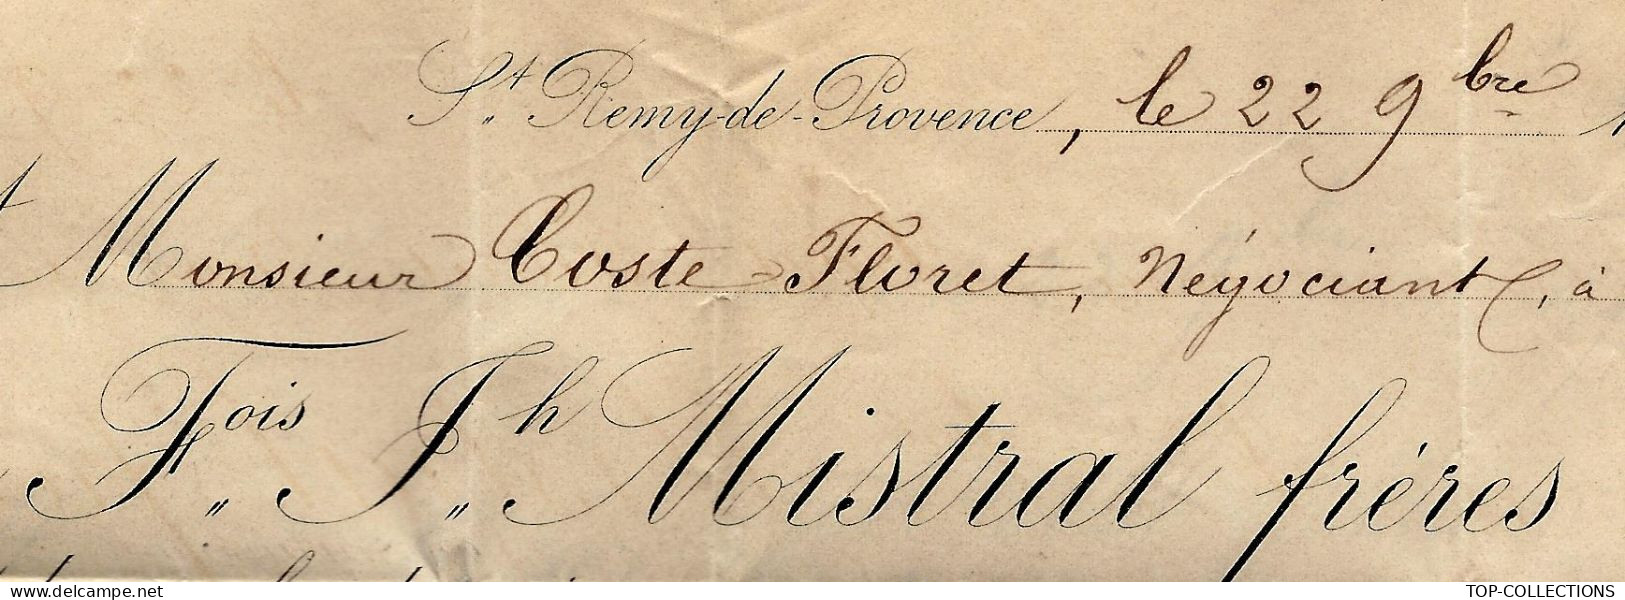 St Remy-de-Provence, le 22 9bre
Monsieur Coste-Floret, Négociant, à
Fois Jh Mistral frères
www.delcampe.net
TOP-COLLECTIONS